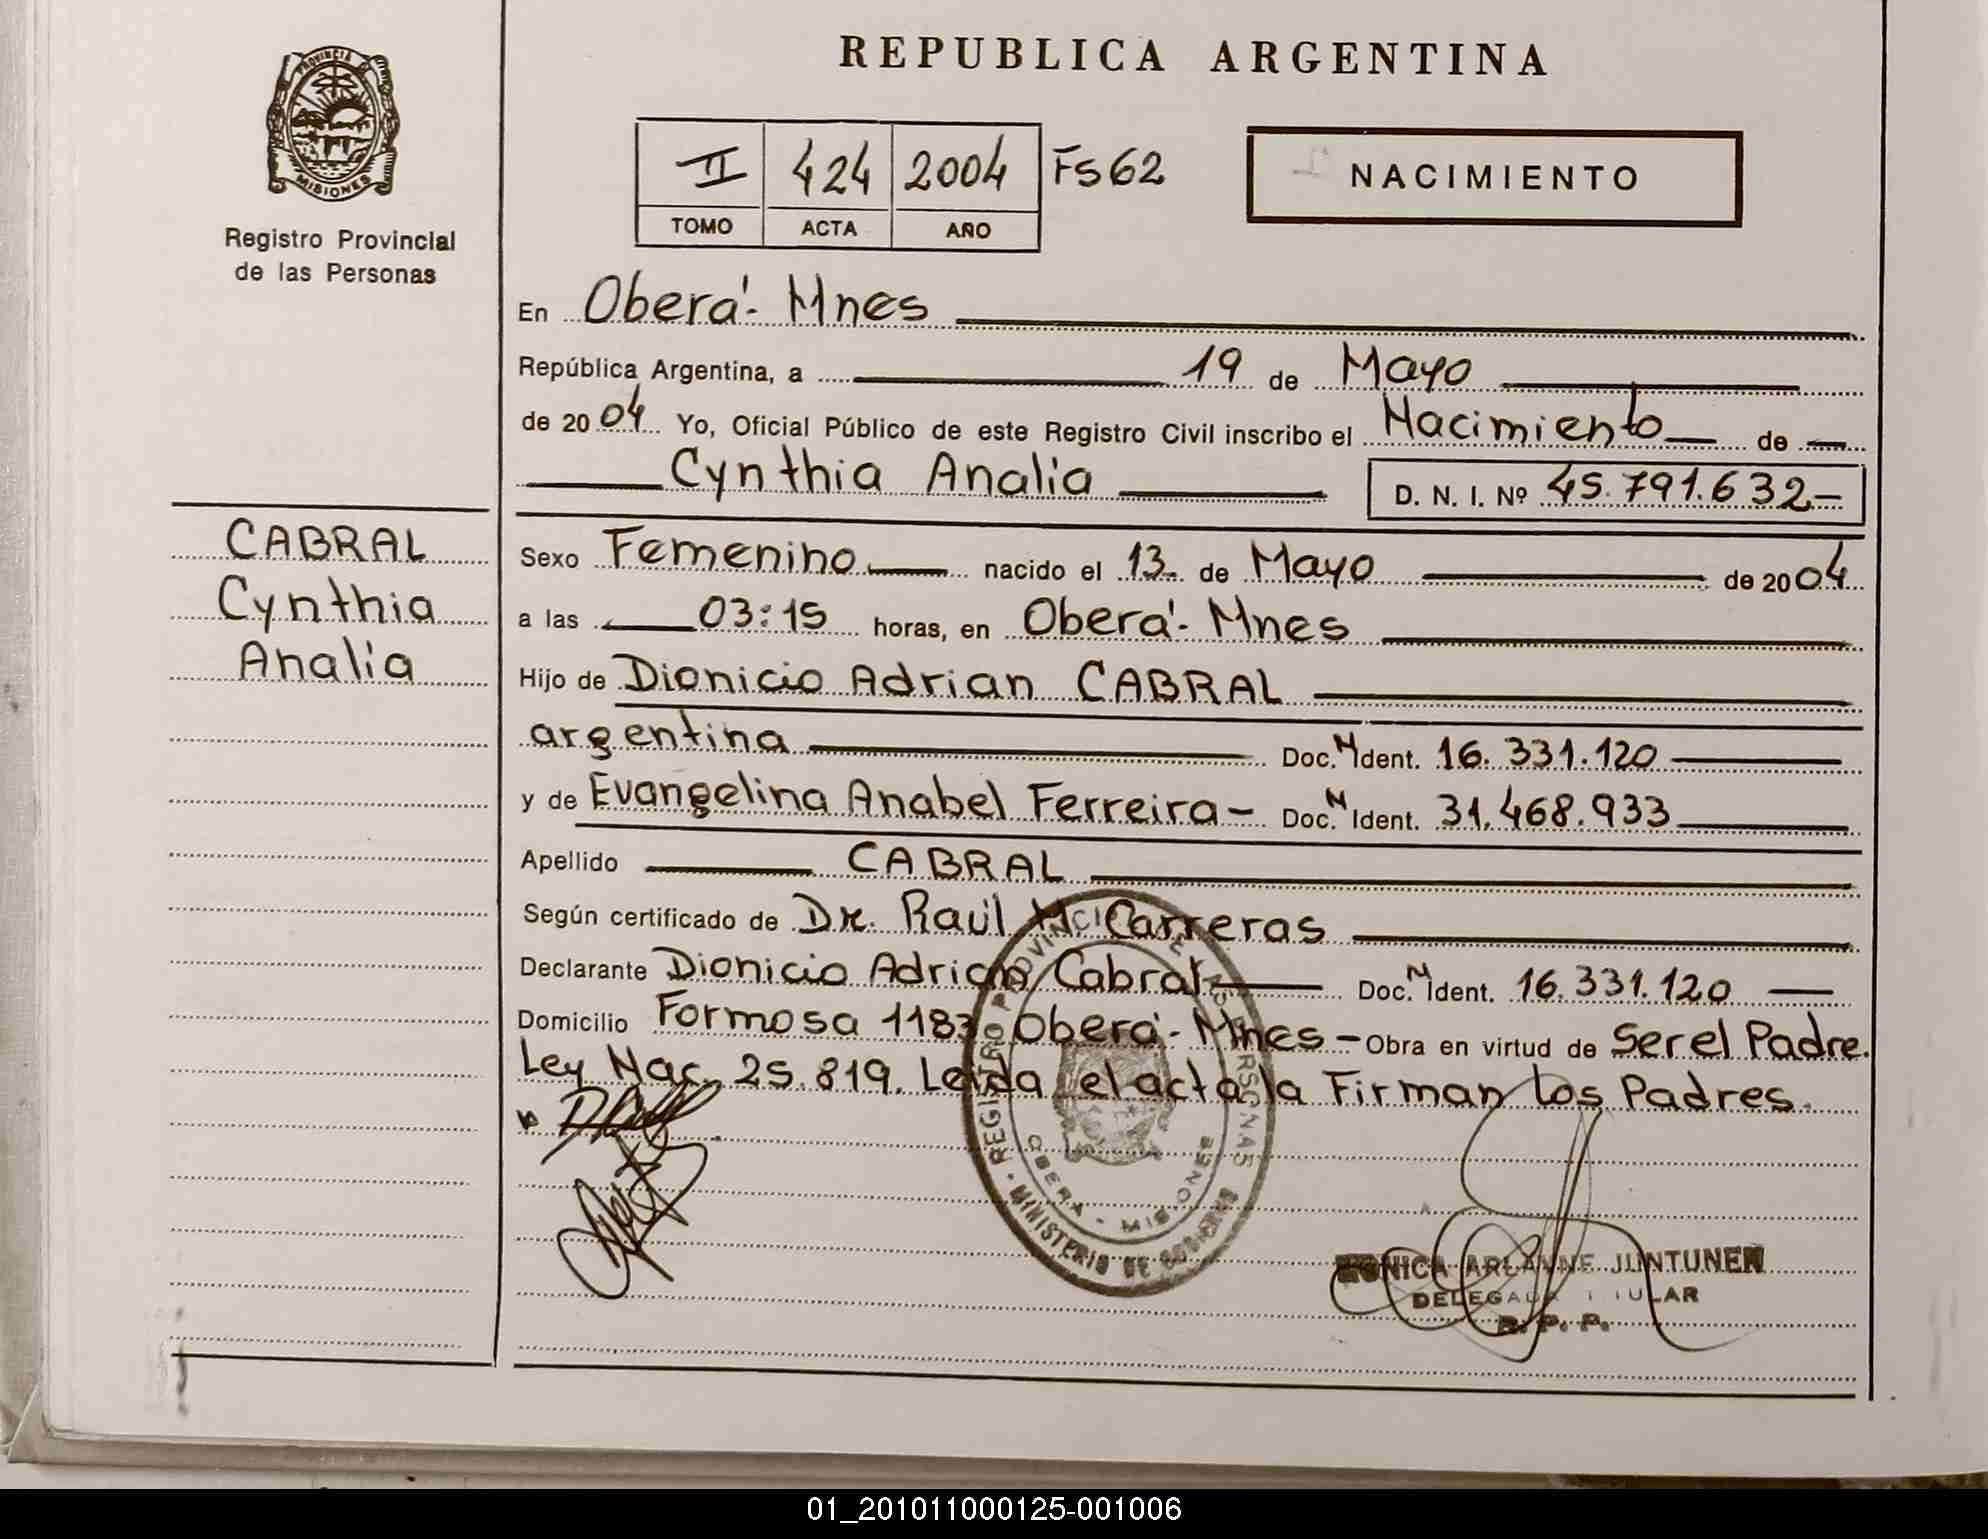 REPUBLICA ARGENTINA
PROVINCIA DE
MISIONES
Registro Provincial
de las Personas
II 424 2004 Fs 62
TOMO ACTA AÑO
NACIMIENTO
En Oberá - Mnes
República Argentina, a 19 de Mayo
de 2004 Yo, Oficial Público de este Registro Civil inscribo el Nacimiento de
Cynthia Analia D. N. I. Nº 45.791.632.-
CABRAL
Cynthia
Analia
Sexo Femenino nacido el 13 de Mayo de 2004
a las 03:15 horas, en Oberá - Mnes
Hijo de Dionicio Adrian CABRAL
argentina Doc. N Ident. 16.331.120
y de Evangelina Anabel Ferreira - Doc. N Ident. 31.468.933
Apellido CABRAL
Según certificado de Dr. Raúl M. Carreras
Declarante Dionicio Adrian Cabral Doc. N Ident. 16.331.120
Domicilio Formosa 1183 Oberá - Mnes - Obra en virtud de Ser el Padre.
Ley Nac. 25.819. Leida el acta la Firman los Padres.
REGISTRO PROVINCIAL DE LAS PERSONAS
OBERA - MISIONES
MINISTERIO DE GOBIERNO
MONICA ARIANNE JUNTUNEN
DELEGADA TITULAR
R. P. P.
01_201011000125-001006